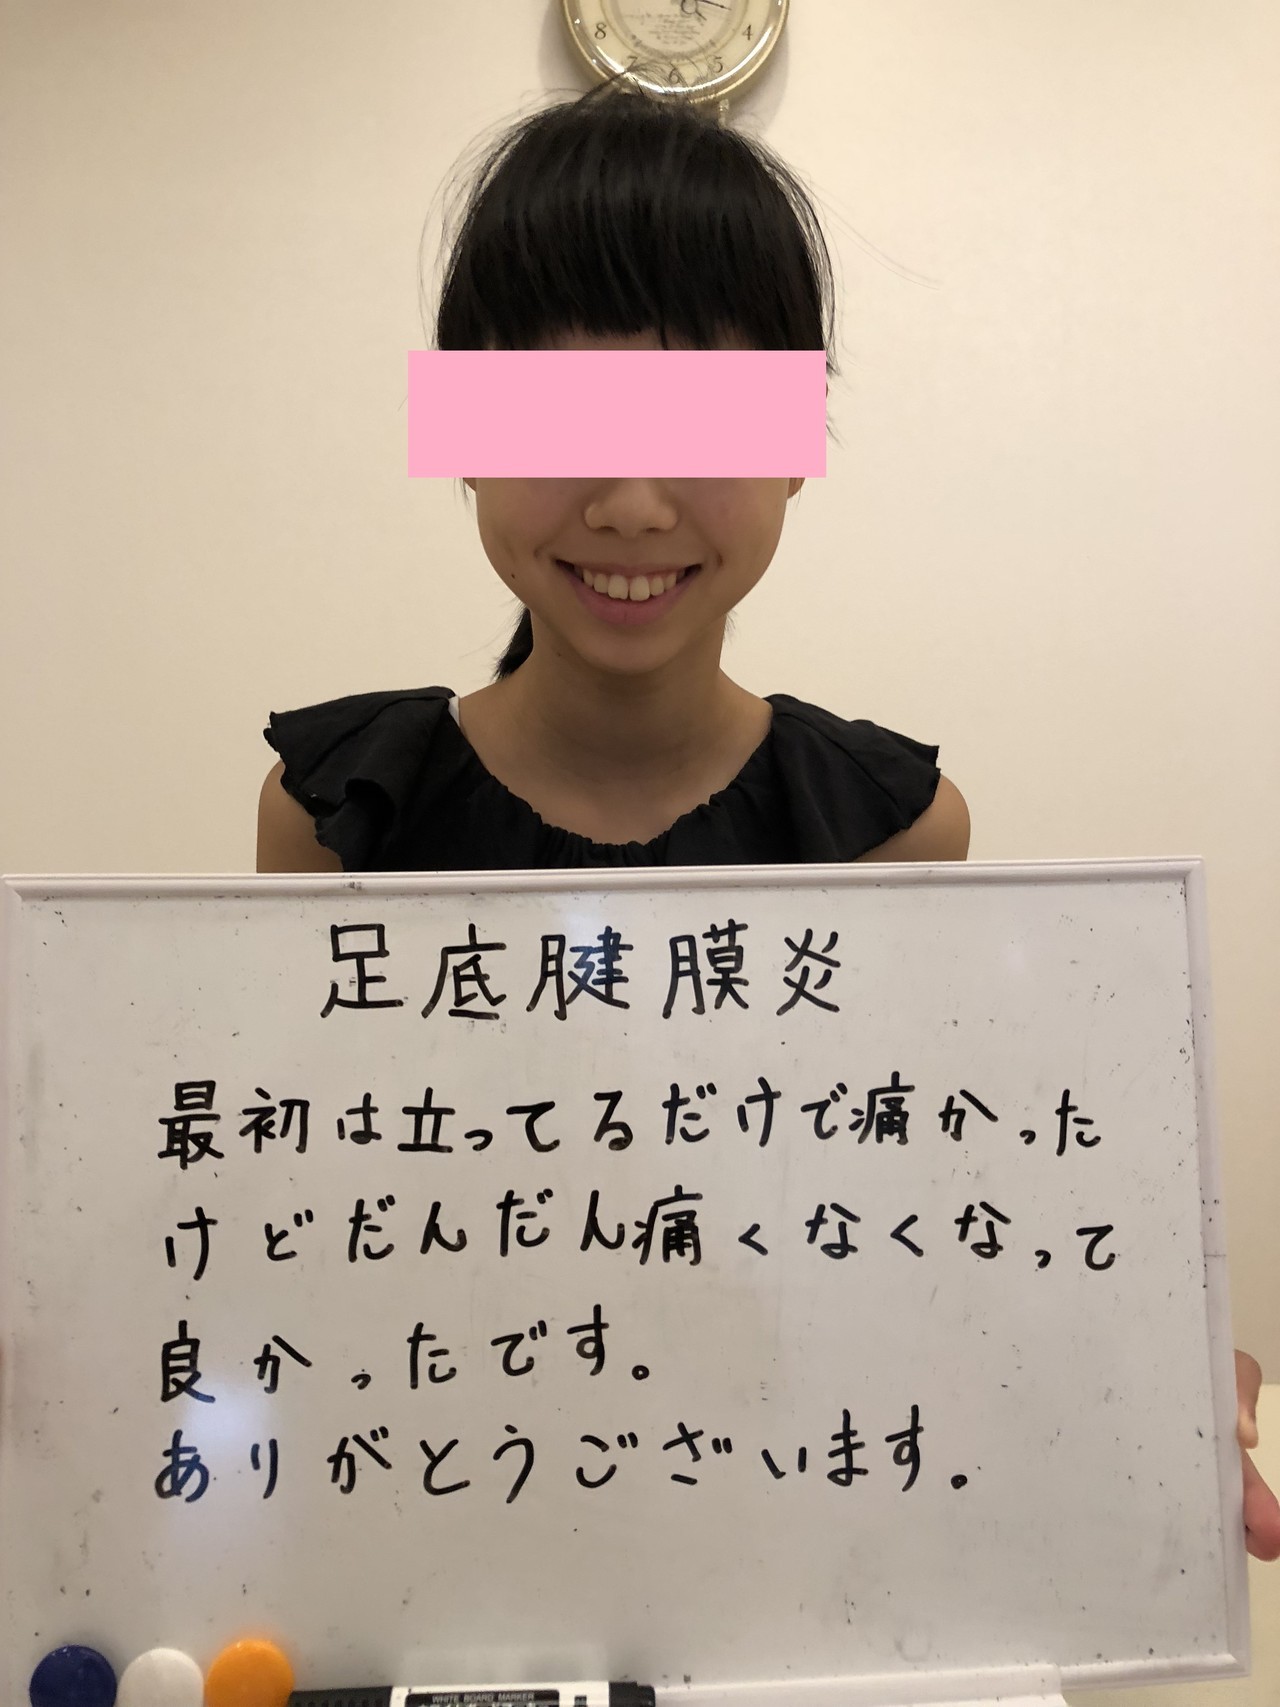 8
7
6
5
4
足底腱膜炎
最初は立ってるだけで痛かった
けどだんだん痛くなくなって
良かったです。
ありがとうございます。
WHITE BOARD MARKER